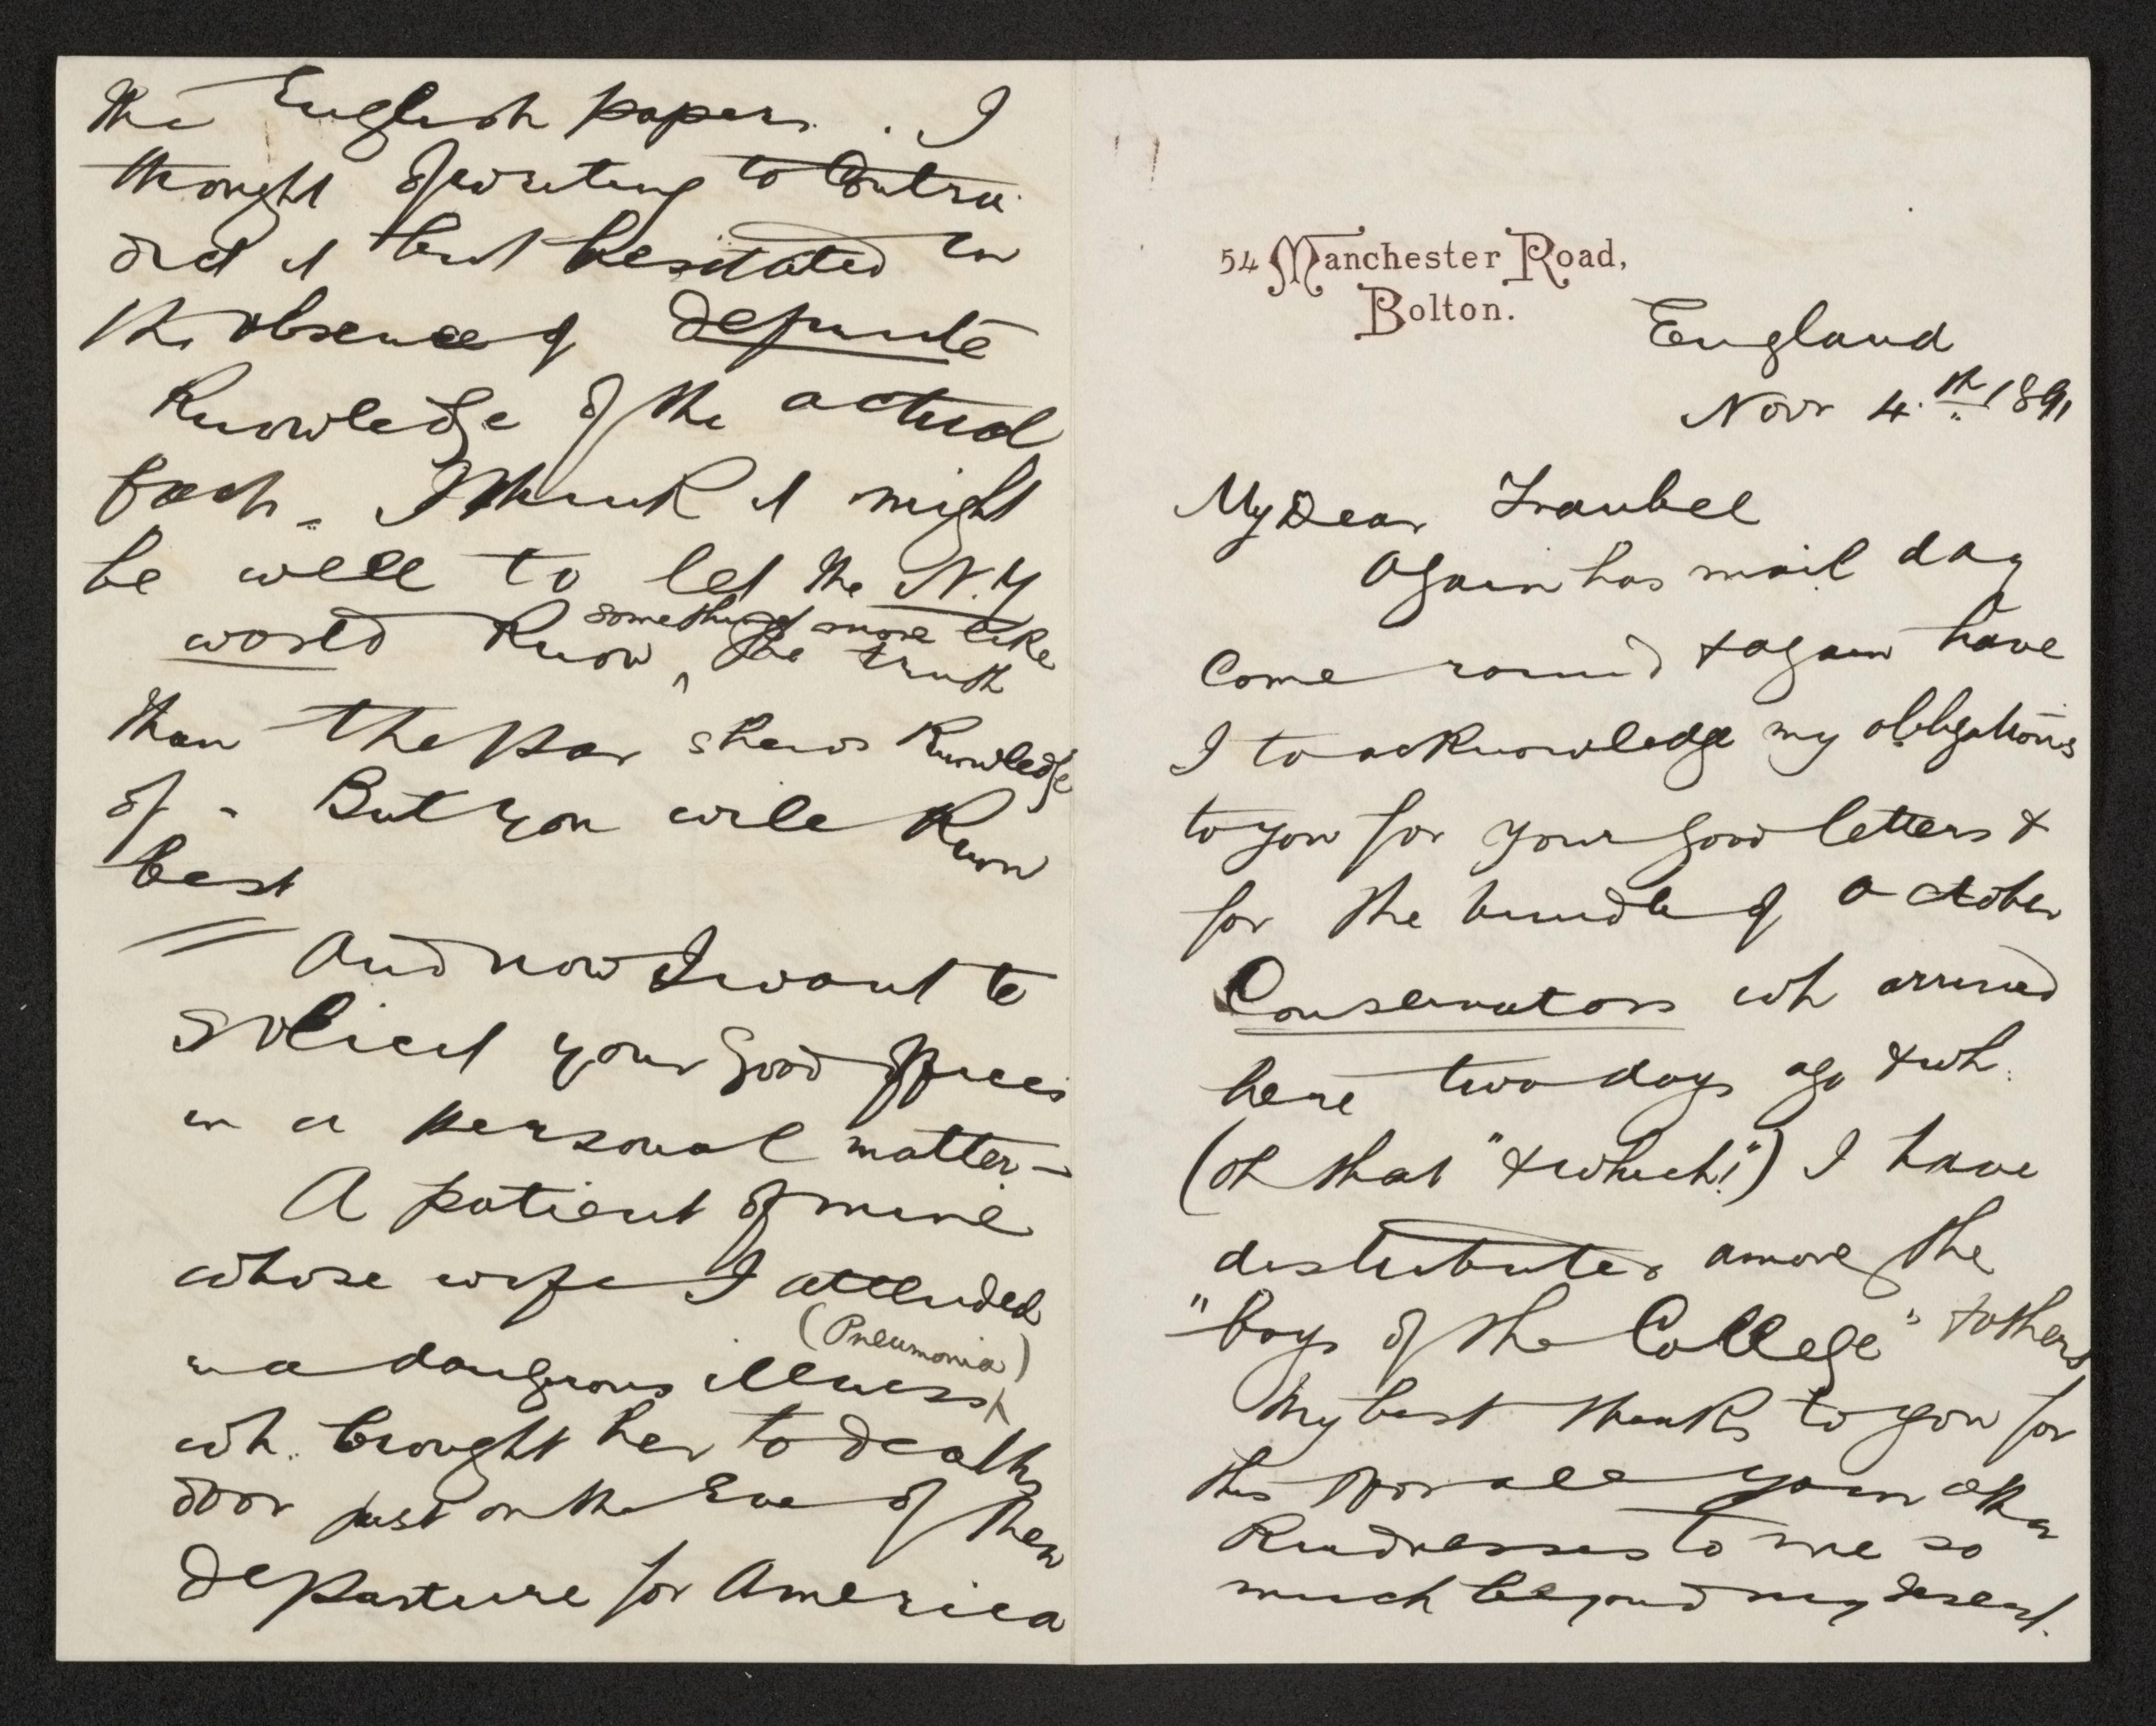 the English papers. I
thought of writing to contra-
dict it but hesitated in
the absence of definite
knowledge of the actual
facts – I think it might
be well to let the N.Y
something more like
world know ^ the truth
than the par shews knowledge
of – But you will know
best
And now I want to
solicit your good offices
in a personal matter –
A patient of mine
whose wife I attended
(Pneumonia)
in a dangerous illness ^
wh. brought her to deaths
door just on the eve of their
departure for America
54 Manchester Road,
Bolton.
England
Novr 4th 1891
My Dear Traubel
Again has mail day
come round & again have
I to acknowledge my obligations
to you for your good letters &
for the bundle of October
Conservators wh arrived
here two days ago & wh.
(oh that "& which"!) I have
distributed among the
"boys of the College" & others
My best thanks to you for
this & for all your other
kindnesses to me so
much beyond my desert.